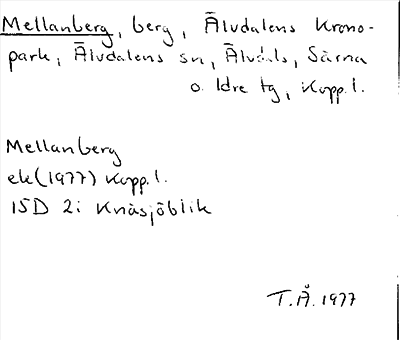 Mellanberg, berg, Älvdalens Krono-
park, Älvdalens sn, Älvdals, Särna
o. Idre tg, Kopp.l.
Mellanberg
ek(1977) Kopp.l.
15D 2i Knäsjöblik
T.Å. 1977